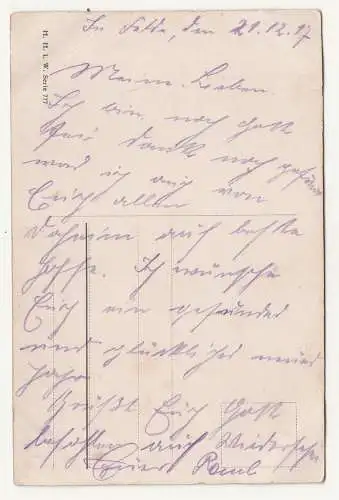 H. H. i. W. Serie 777
Im Felde, den 21.12.17
Meine Lieben.
Ich bin noch Gott
sei dank noch gesund
was ich auch von
Euch allen
daheim auch bestes
hoffe. Ich wünsche
Euch ein gesundes
und glückliches neues
Jahr.
Grüßt Euch Gott
befohlen auf Wiedersehn
Euer Paul